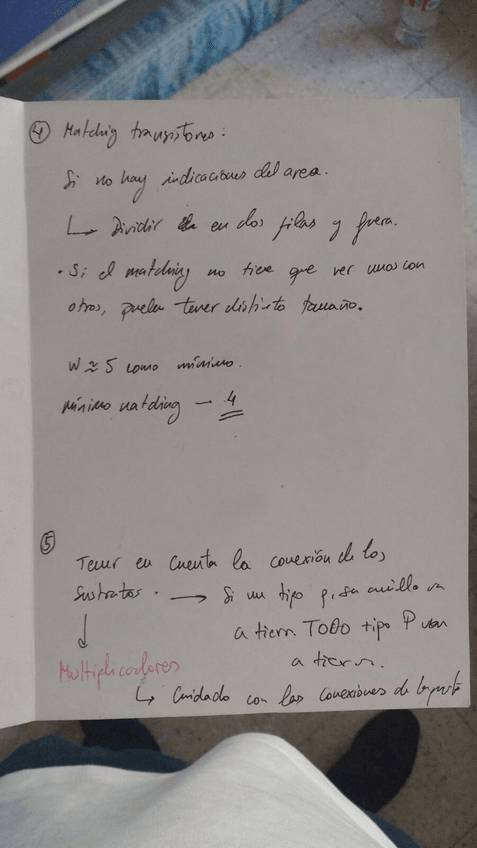 ④ Matching transistores:
Si no hay indicaciones del area.
↳ Dividir en dos filas y fuera.
• Si el matching no tiene que ver unos con
otros, pueden tener distinto tamaño.
W ≈ 5 como mínimo.
mínimo matching — 4
⑤
Tener en cuenta la conexión de los
sustratos. → Si un tipo p, su anillo va
↓ a tierra TODO tipo P van
Multiplicadores a tierra.
↳ Cuidado con las conexiones de